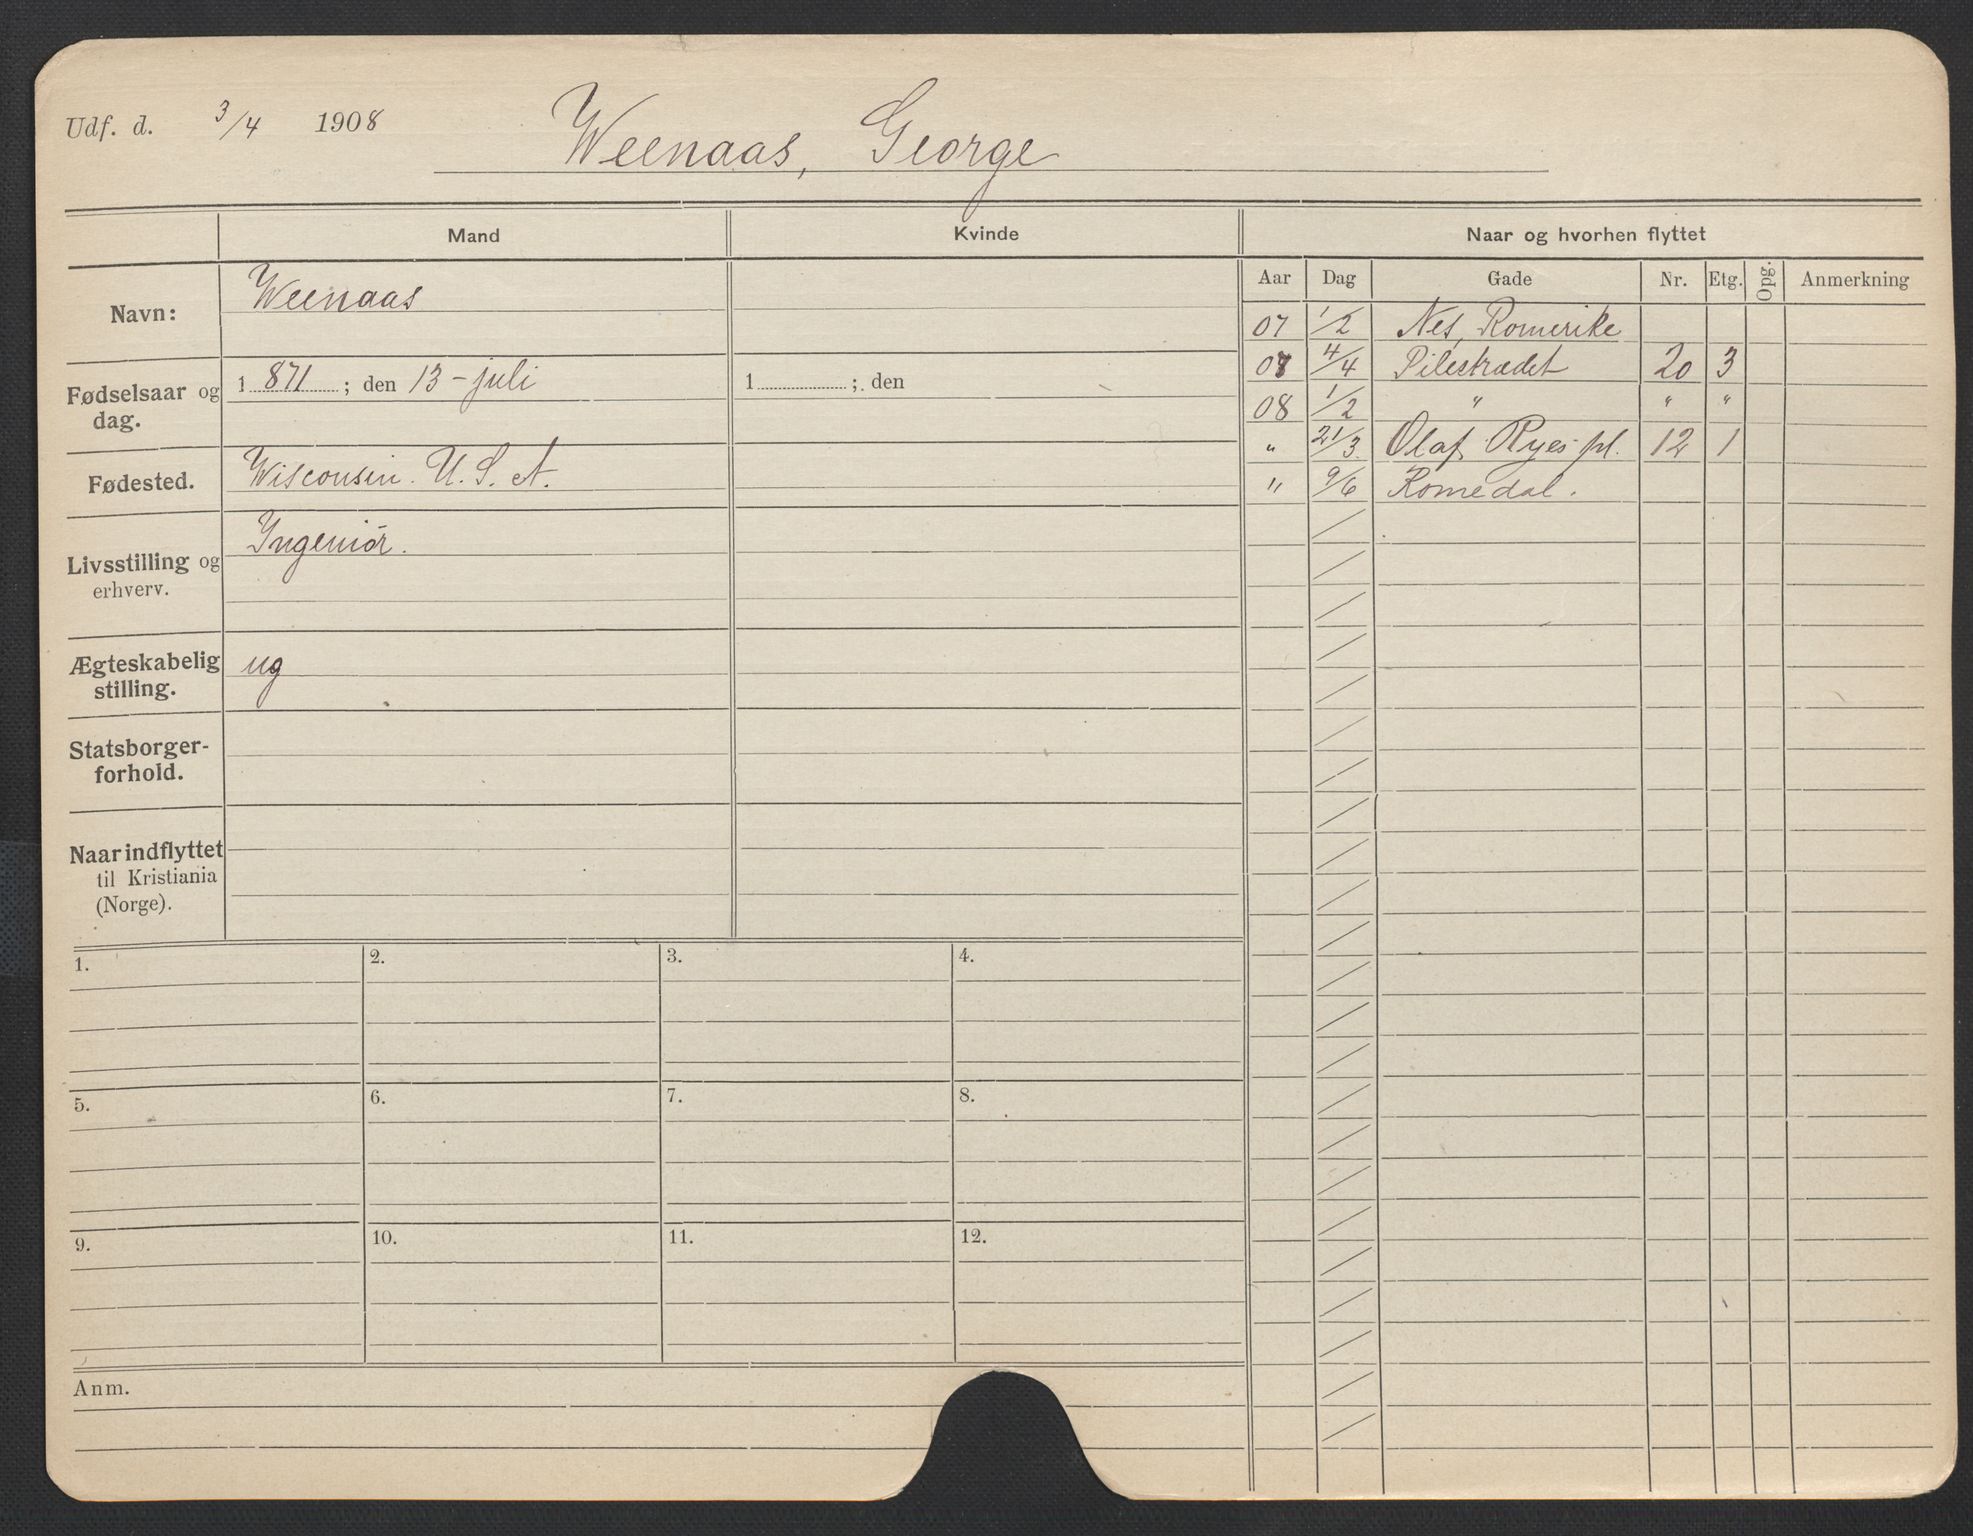 Udf. d. 3/4 1908 Weenaas, George
Mand Kvinde Naar og hvorhen flyttet
Aar Dag Gade Nr. Etg. Opg. Anmerkning
Navn: Weenaas
07 1/2 Nes, Romerike
07 4/4 Pilestrædet 20 3
Fødselsaar og dag. 1 871 ; den 13 - juli 1 ; den
08 1/2 " " "
" 21/3 Olaf Ryes pl. 12 1
Fødested. Wisconsin. U. S. A.
" 9/6 Romedal.
Livsstilling og erhverv. Ingeniør.
Ægteskabelig stilling. ug
Statsborger-
forhold.
Naar indflyttet
til Kristiania
(Norge).
1. 2. 3. 4.
5. 6. 7. 8.
9. 10. 11. 12.
Anm.